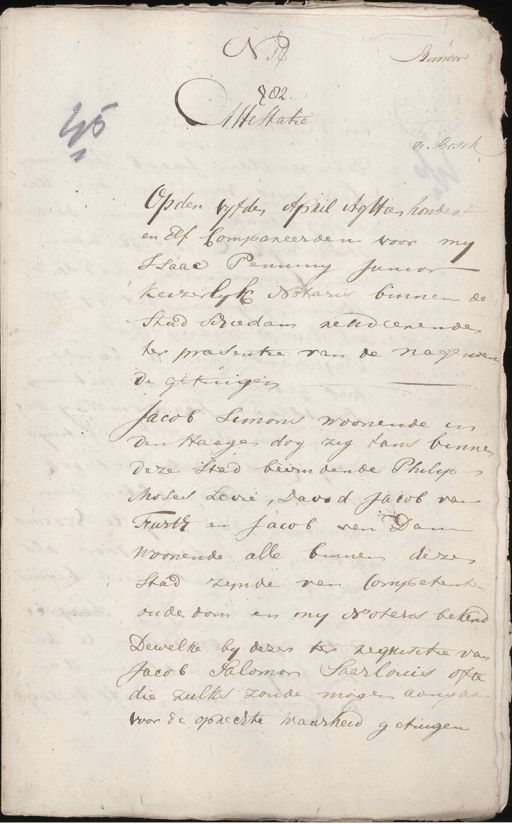 N 58
282.
Attestatie
45
Op den vyfden April Agttienhondert
en Elf Compareerden voor my
Isaac Penning Junior
Keizerlyk Notaris binnen de
Stad Schiedam resideerende
ter præsentie van de nagenoem
de getuigen
Jacob Simons woonende in
den Haage dog zig thans binnen
deze Stad bevindende Philip
Moses Levie, David Jacob van
Furth en Jacob van Dam
woonende alle binnen dezer
Stad zynde van Competenten
ouderdom en my Notaris bekend
Dewelke by dezen ter requisitie van
Jacob Salomon Saarlouis ofte
die zulks zoude mogen aangaan
voor de opregte waarheid getuigen